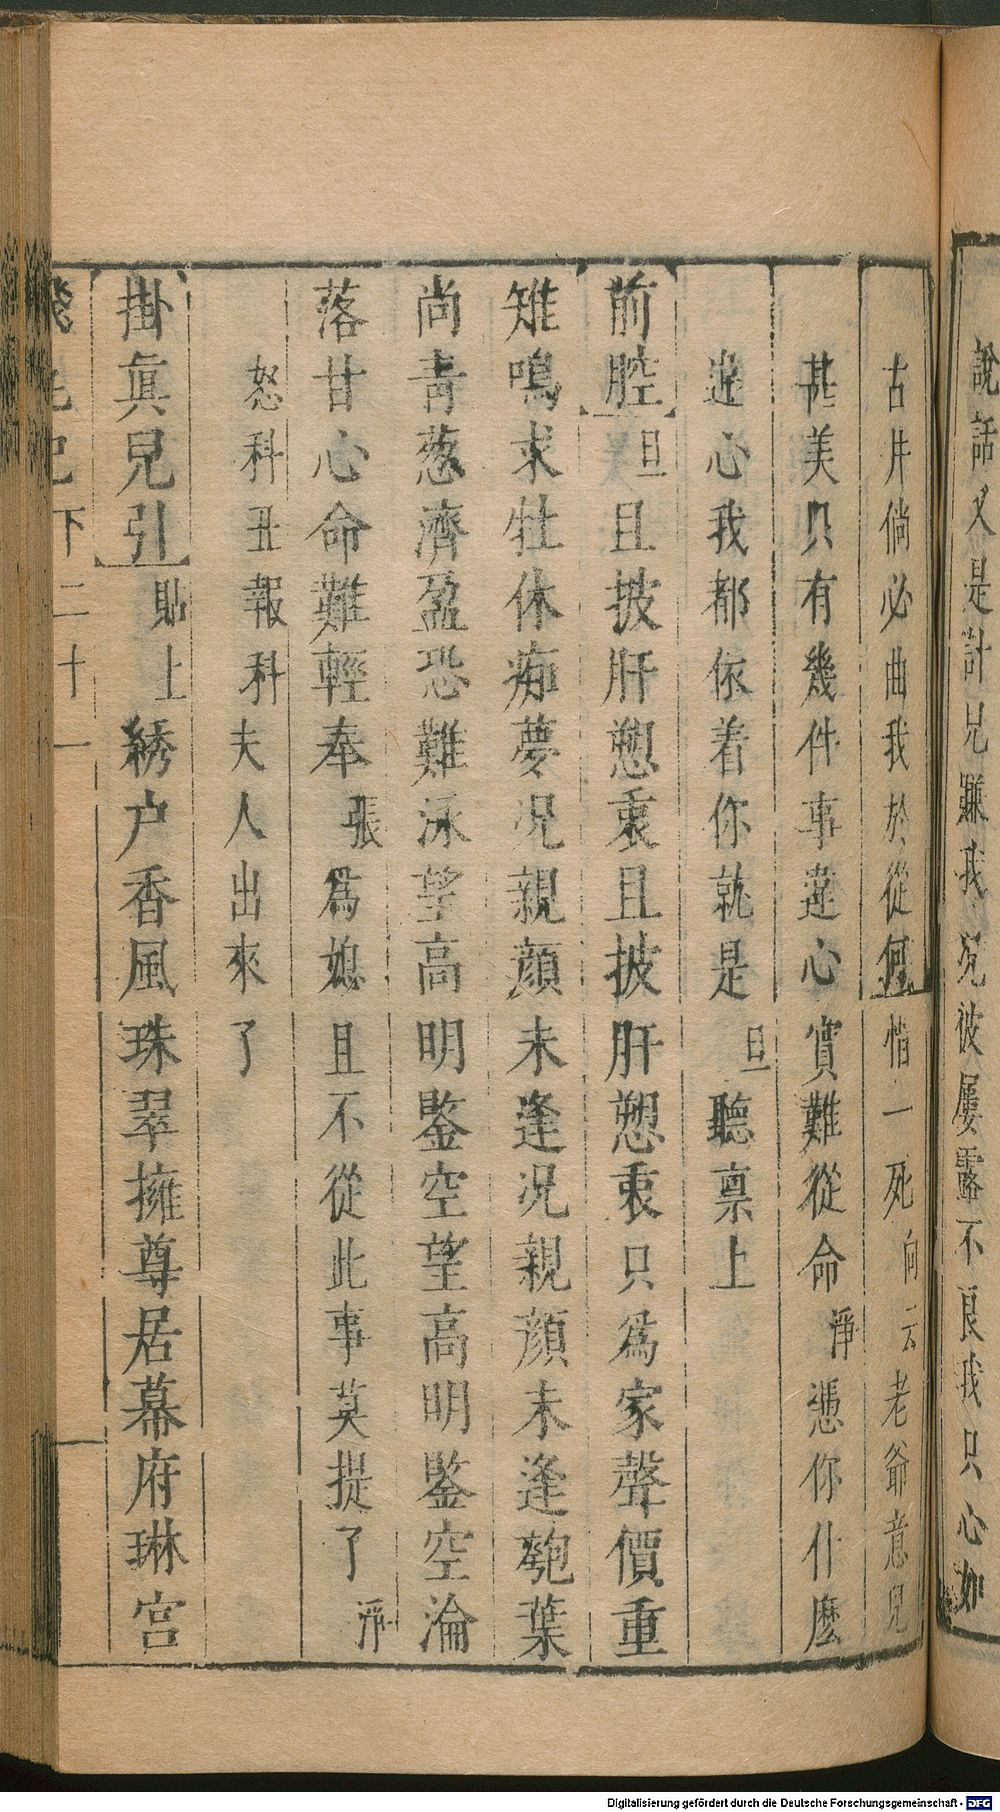 說話又是計兄賺我況彼屢露不良我只心如
古井倘必曲我於從何惜一死向云老爺意兒
甚美只有幾件事違心實難從命淨憑你什麽
遂心我都依着你就是旦聽禀上
前腔旦且披肝愬衷且披肝愬衷只爲家聲價重
雉鳴求牡休痴夢况親顏未逢况親顏未逢匏葉
尚青葱濟盈恐難泳望高明鑒空望高明鑒空淪
落甘心命難輕奉張爲媳且不從此事莫提了淨
怒科丑報科夫人出來了
掛眞兒引貼上綉户香風珠翠擁尊居幕府琳宫
記下二十一
Digitalisierung gefördert durch die Deutsche Forschungsgemeinschaft - DFG